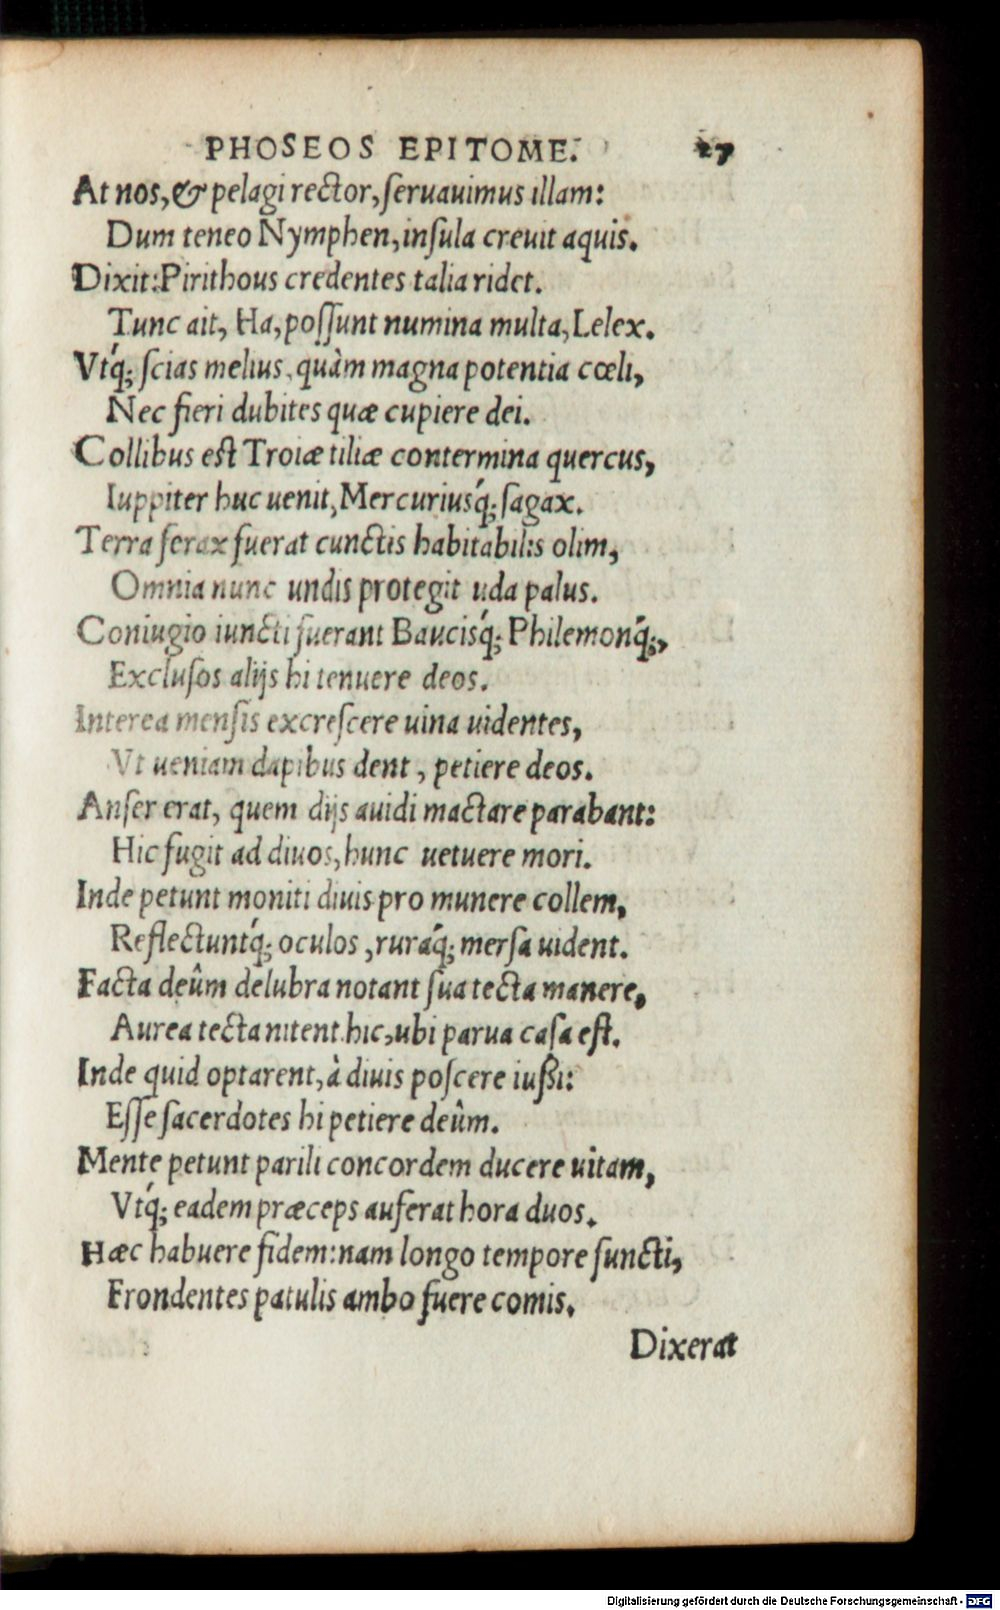 PHOSEOS EPITOME. 27
At nos, & pelagi rector, ſeruauimus illam:
Dum teneo Nymphen, inſula creuit aquis.
Dixit: Pirithous credentes talia ridet.
Tunc ait, Ha, poſſunt numina multa, Lelex.
Vtq́; ſcias melius, quàm magna potentia cœli,
Nec fieri dubites quæ cupiere dei.
Collibus est Troiæ tiliæ contermina quercus,
Iuppiter huc uenit, Mercuriusq́; ſagax.
Terra ferax fuerat cunctis habitabilis olim,
Omnia nunc undis protegit uda palus.
Coniugio iuncti fuerant Baucisq́; Philemonq́;,
Excluſos alijs hi tenuere deos.
Interea menſis excreſcere uina uidentes,
Vt ueniam dapibus dent, petiere deos.
Anſer erat, quem dijs auidi mactare parabant:
Hic fugit ad diuos, hunc uetuere mori.
Inde petunt moniti diuis pro munere collem,
Reflectuntq́; oculos, ruraq́; merſa uident.
Facta deûm delubra notant ſua tecta manere,
Aurea tecta nitent hic, ubi parua caſa eſt.
Inde quid optarent, à diuis poſcere iußi:
Eſſe ſacerdotes hi petiere deûm.
Mente petunt parili concordem ducere uitam,
Vtq́; eadem præceps auferat hora duos.
Hæc habuere fidem: nam longo tempore functi,
Frondentes patulis ambo fuere comis.
Dixerat
Digitalisierung gefördert durch die Deutsche Forschungsgemeinschaft - DFG